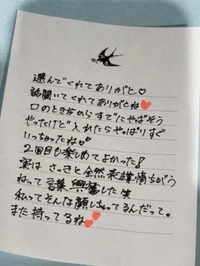 選んでくれてありがと♡
話聞いてくれてありがとね♥
口のときからすでにやばそう
やったけど入れたらやっぱりすぐ
いっちゃったね♡
2回目も楽しめてよかった!
実は さっきと全然表情ちがう
ねって言葉興奮した笑
私ってそんな顔しちゃってるんだって。
また待ってるね♥♥